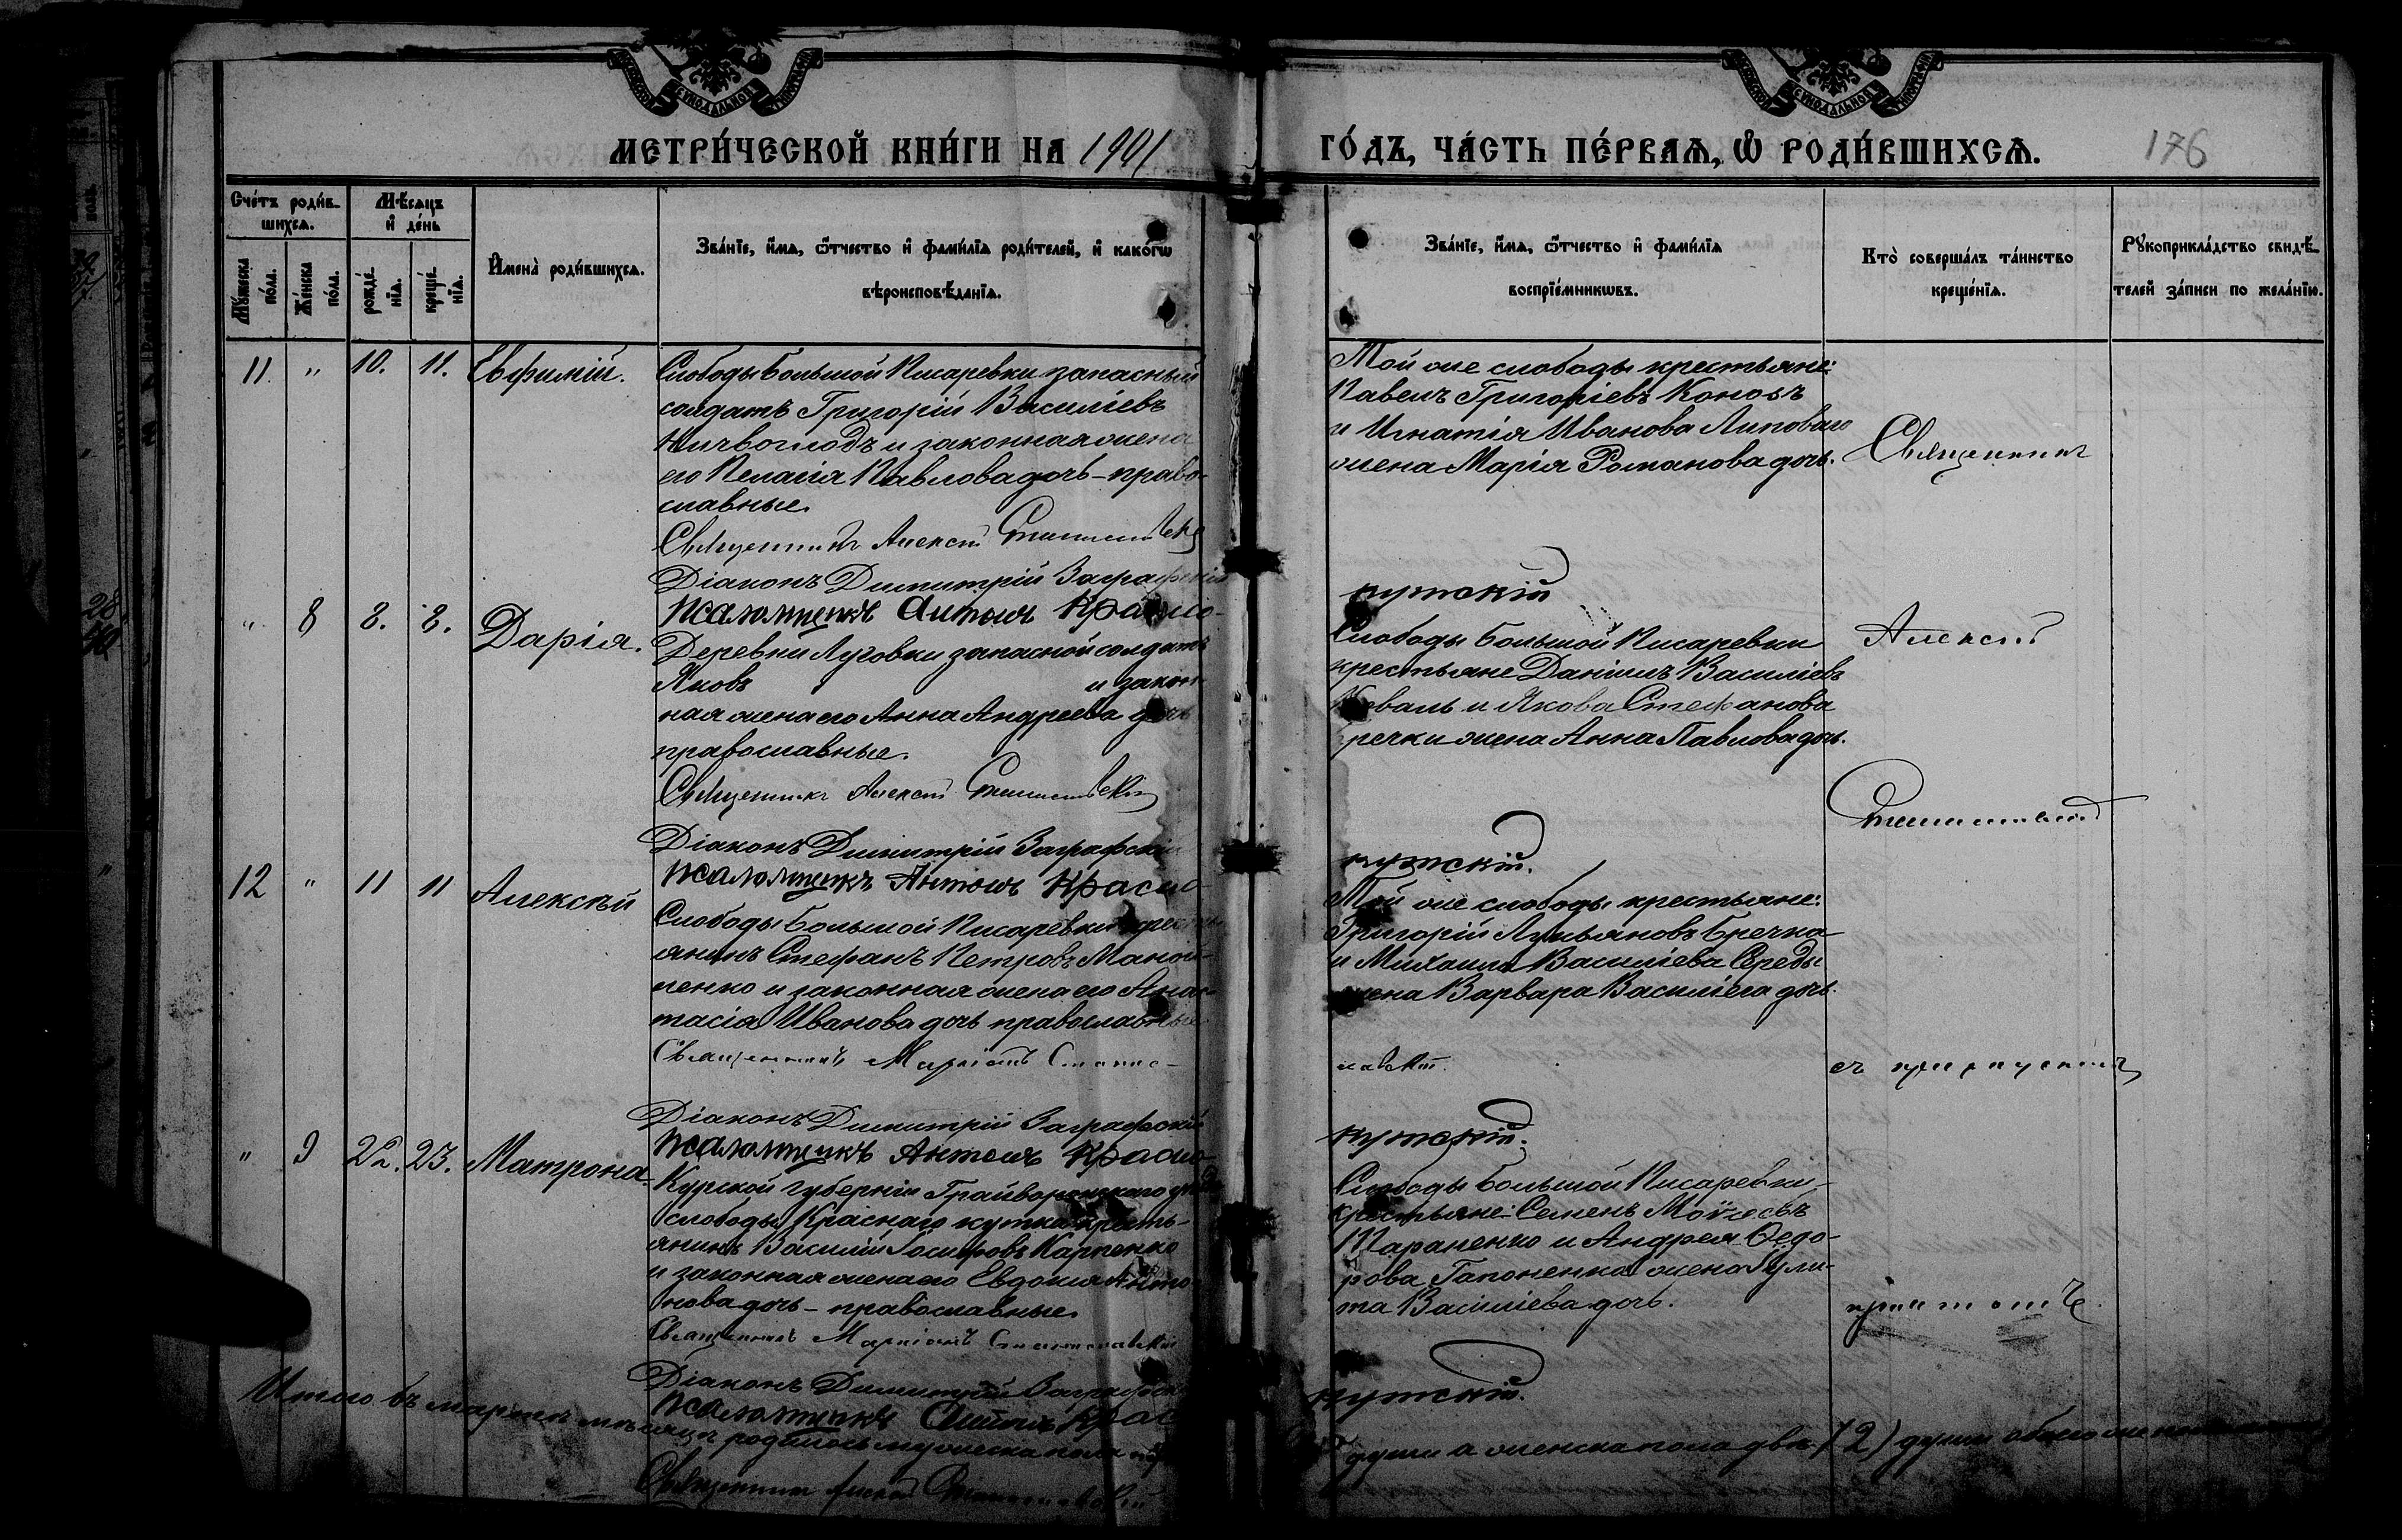 МЕТРИ́ЧЕСКОЙ КНИ́ГИ НА 1901
ГО́ДЪ, ЧА́СТЬ ПЕ́РВАѦ, Ѡ РОДИ́ВШИХСѦ.
176
Сче́тъ роди́в-
шихсѧ.
Мѣсѧцъ
и де́нь
Мꙋжеска
по́ла.
Же́нска
по́ла.
рожде́-
нїѧ.
креще́-
нїѧ.
Имена̀ роди́вшихсѧ.
Зва́нїе, и҆́мѧ, ѻ҆́тчество и҆ фами́лїѧ роди́телей, и҆ како́гѡ
вѣроисповѣ́данїѧ.
Зва́нїе, и҆́мѧ, ѻ҆́тчество и҆ фами́лїѧ
воспрїе́мникѡвъ.
Кто̀ соверша́лъ та́инство
креще́нїѧ.
Рꙋкоприкла́дство свидѣ́-
телей за́писи по жела́нїю.
11. " 10. 11. Евфимій.
Слободы Большой Писаревки запасный
солдатъ Григорій Василіевъ
и законная жена
его Пелагія Павлова дочь - право-
славные.
Священникъ Алексій
Діаконъ Димитрій Заграфскій
Псаломщикъ Антоній Красно-
Той же слободы крестьяне:
Павелъ Григоріевъ Коновъ
и Игнатія Иванова Липоваго
жена Марія Романова дочь.
кутскій
Священникъ
" 8 8. 8. Дарія.
Деревни Луговки запасной солдатъ
Яковъ и закон-
ная жена его Анна Андреева дочь
православные.
Священникъ Алексій
Діаконъ Димитрій Заграфскій
Псаломщикъ Антоній Красно-
Слободы Большой Писаревки
крестьяне Даніилъ Василіевъ
Коваль и Якова Стефанова
жена Анна Павлова дочь.
кутскій.
Алексій
12 " 11 11 Алексѣй
Слободы Большой Писаревки кресть-
янинъ Стефанъ Петровъ Маной-
ленко и законная жена его Анас-
тасія Иванова дочь православные
Священникъ Маркіонъ Станис-
Діаконъ Димитрій Заграфскій
Псаломщикъ Антоній Красно-
Той же слободы крестьяне:
Григорій Лукьяновъ Бречка
и Михаила Василіева Середы
жена Варвара Василіева дочь.
лавскій.
кутскій.
съ
" 9 22. 23. Матрона.
Курской губерніи Грайворонскаго уѣзда
слободы Краснаго кутка кресть-
янинъ Василій Іосифовъ Карпенко
и законная жена его Евдокія Анто-
нова дочь - православные.
Священникъ Маркіонъ Станиславскій
Діаконъ Димитрій Заграфскій
Псаломщикъ Антоній Крас
Слободы Большой Писаревки
крестьяне: Семенъ Моѵсеевъ
Тараненко и Андрея Ѳедо-
рова Гапоненка жена Іули-
та Василіева дочь.
кутскій.
причтомъ.
Итого въ мартѣ мѣсяцѣ родилось мужеска пола
души а женска пола двѣ (2) души обоего же пола
Священникъ